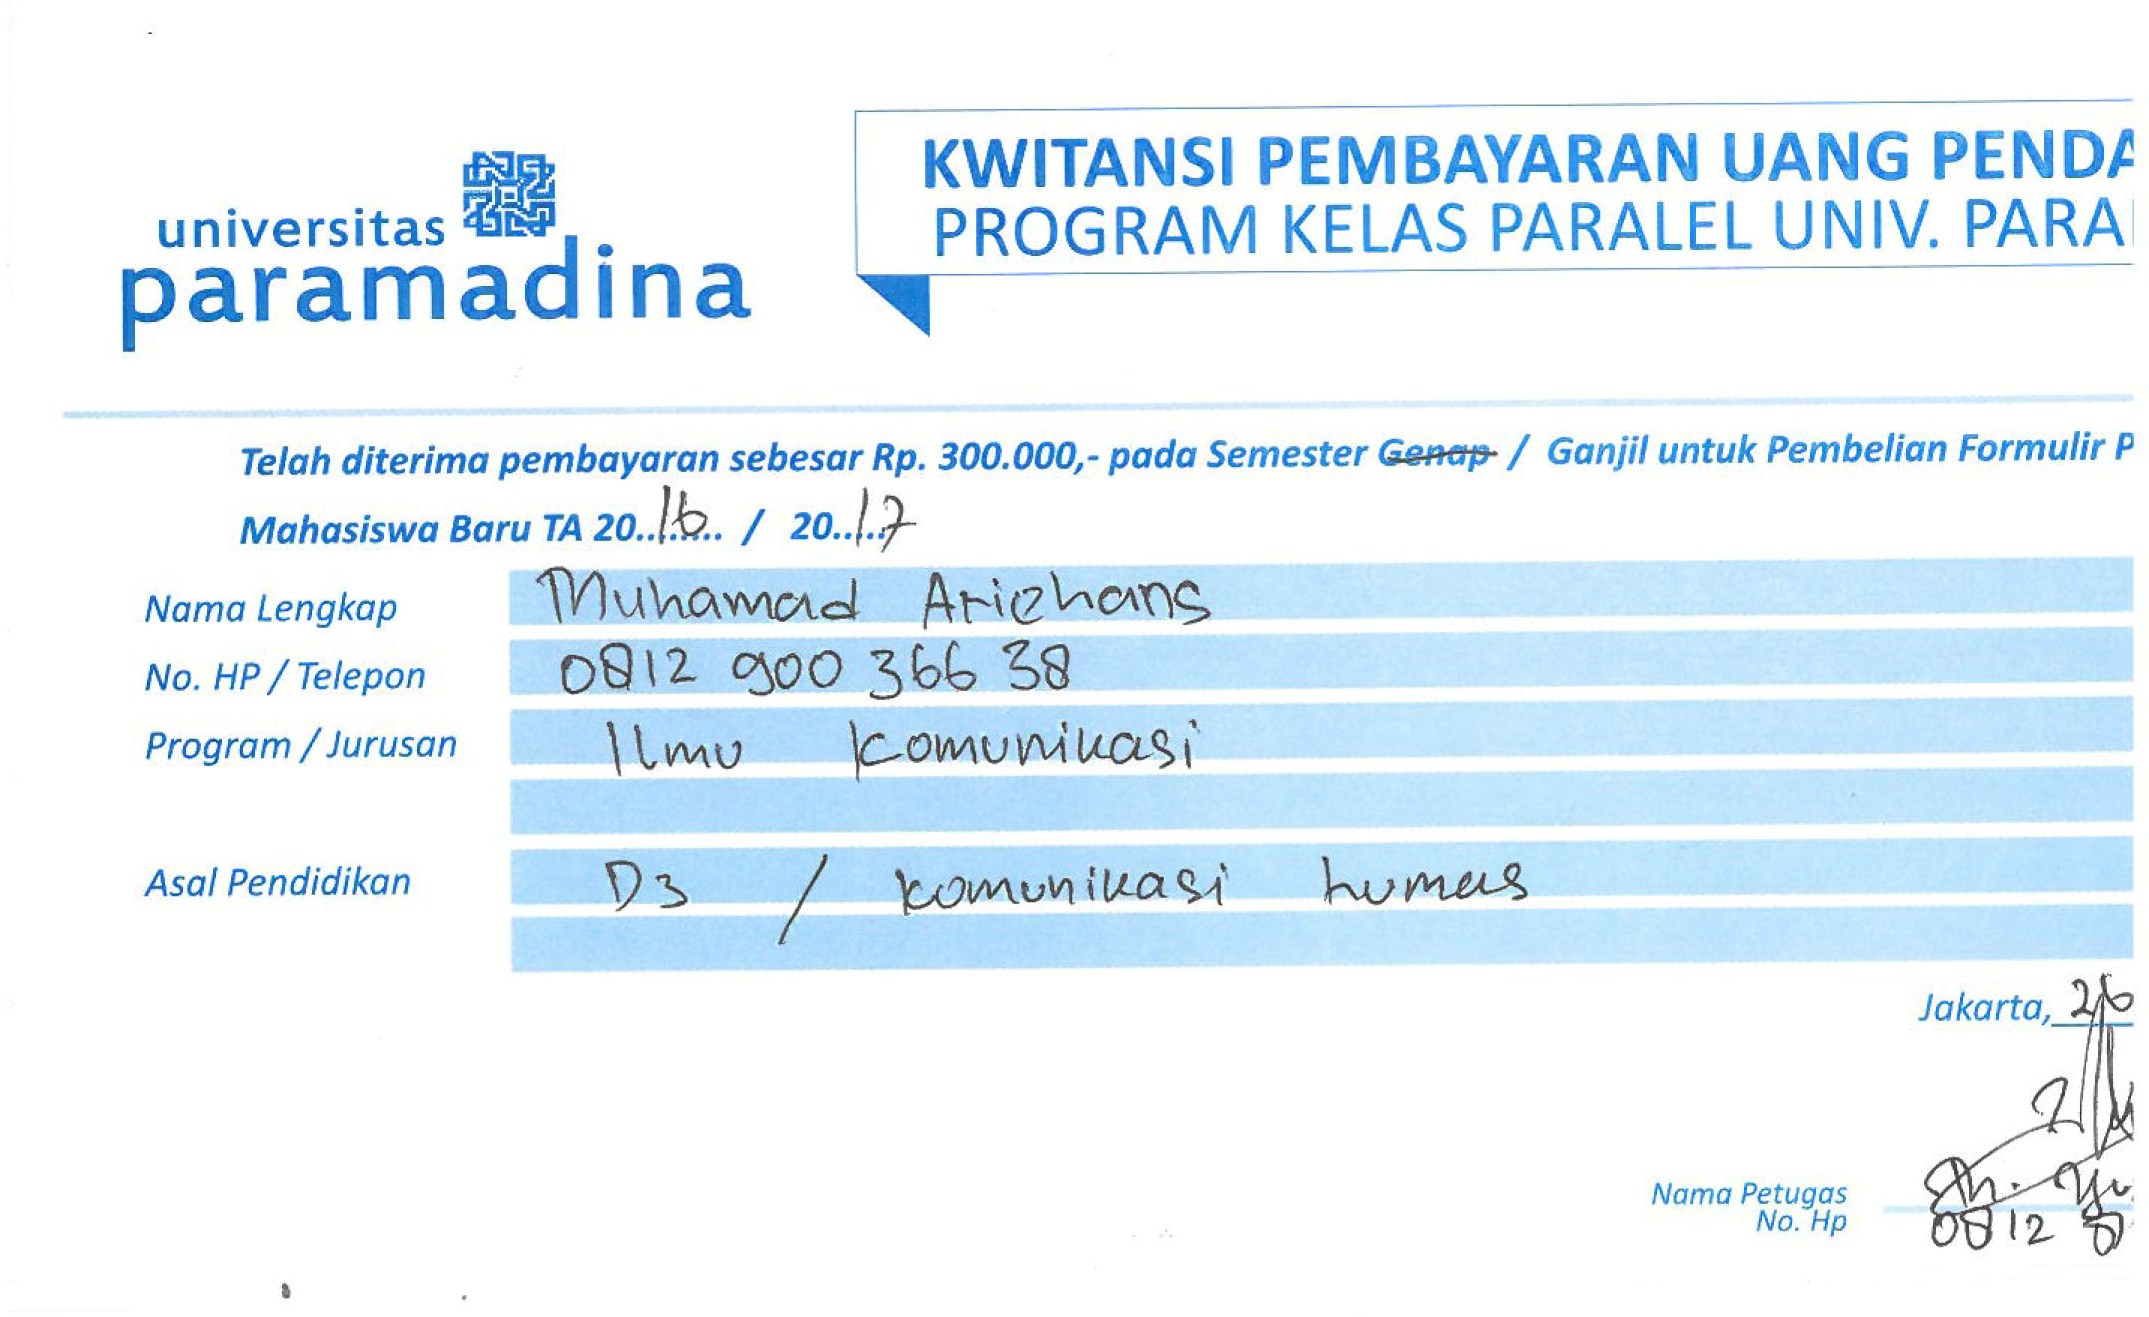 universitas
paramadina
KWITANSI PEMBAYARAN UANG PENDA
PROGRAM KELAS PARALEL UNIV. PARA
Telah diterima pembayaran sebesar Rp. 300.000,- pada Semester Genap / Ganjil untuk Pembelian Formulir P
Mahasiswa Baru TA 20..16... / 20..17
Nama Lengkap Muhamad Ariehans
No. HP / Telepon 0812 900 366 38
Program / Jurusan Ilmu Komunikasi
Asal Pendidikan D3 / Komunikasi humas
Jakarta, 26
Nama Petugas
No. Hp 0812